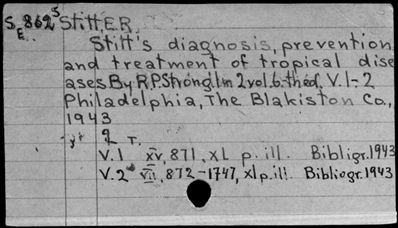 S 862 S Stitt, E.R.
E.
Stitt's diagnosis, prevention
and treatment of tropical dise
ases. By R.P. Strong. In 2 vol. 6-th ed. V. 1-2
Philadelphia, The Blakiston Co.,
1943
2 T.
V.1 XV, 871, XL p. ill. Bibligr. 1943
V.2 VII, 872-1747, XL p. ill. Bibliogr. 1943